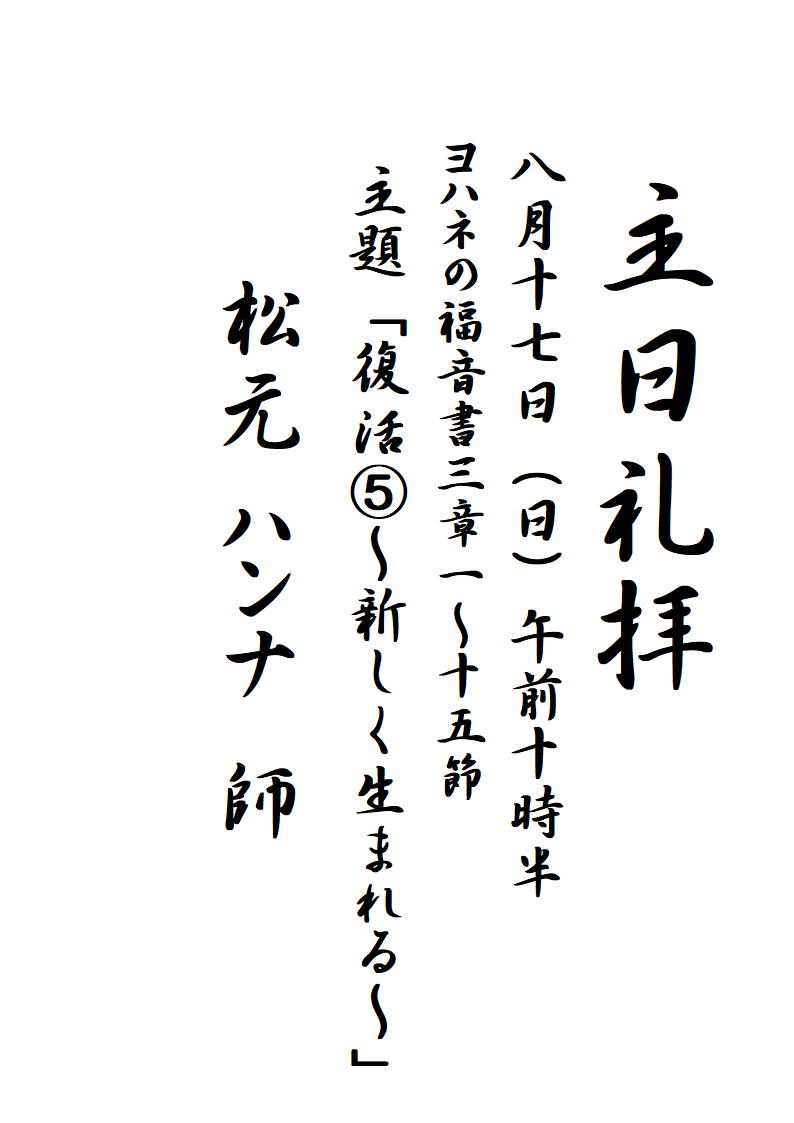 主日礼拝
八月十七日（日）午前十時半
ヨハネの福音書三章一～十五節
主題「復活⑤～新しく生まれる～」
松元 ハンナ 師